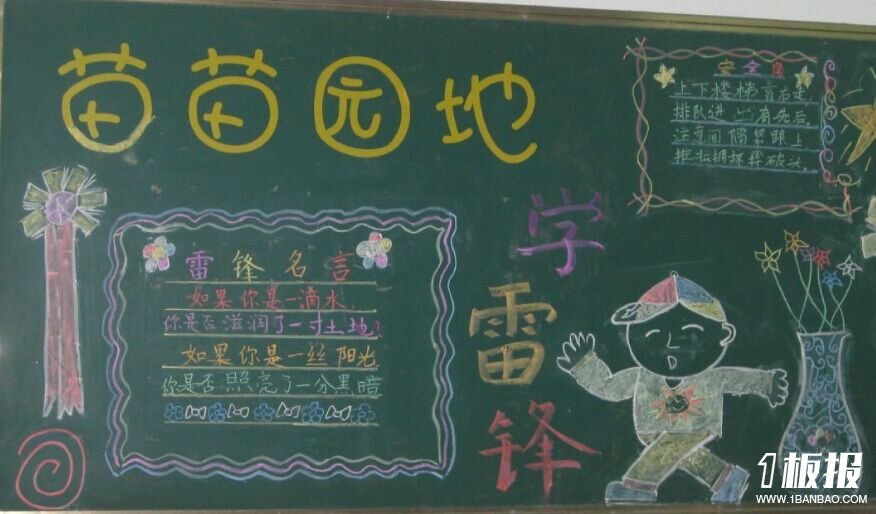 苗苗园地
安全
上下楼梯靠右走
排队进 有先后
注意间隔 跟上
雷锋名言
如果你是一滴水，
你是否滋润了一寸土地？
如果你是一丝阳光
你是否照亮了一分黑暗
学
雷
锋
1板报
WWW.1BANBAO.COM